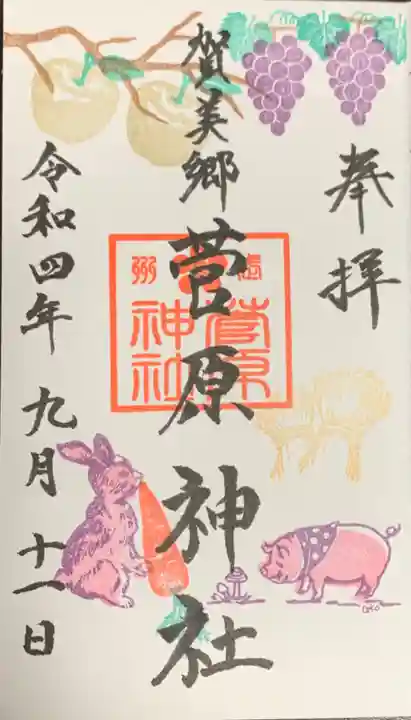 奉拝
賀美郷
菅原神社
令和四年九月十一日
菅原
神社